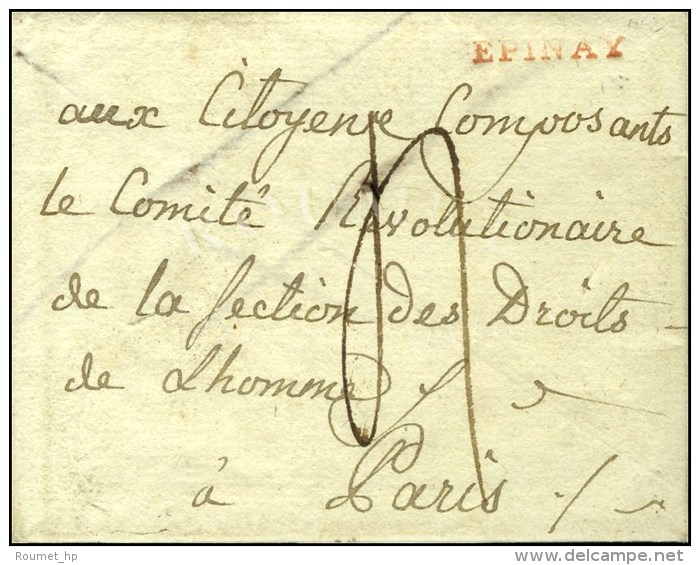 EPINAY
aux Citoyens Composants
le Comité Révolutionaire
de la Section des Droits
de Lhomme
à Paris
Roumet_hp
delcampe.net